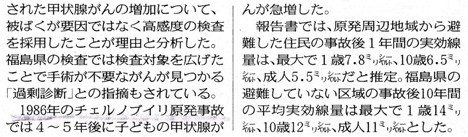 された甲状腺がんの増加について、
被ばくが要因ではなく高感度の検査
を採用したことが理由と分析した。
福島県の検査では検査対象を広げた
ことで手術が不要ながんが見つかる
「過剰診断」との指摘もされている。
1986年のチェルノブイリ原発事故
では4〜5年後に子どもの甲状腺が
んが急増した。
報告書では、原発周辺地域から避
難した住民の事故後1年間の実効線
量は、最大で1歳7.8㍉シーベルト、10歳6.5㍉
シーベルト、成人5.5㍉シーベルトだと推定。福島県の
避難していない区域の事故後10年間
の平均実効線量は最大で1歳14㍉
シーベルト、10歳12㍉シーベルト、成人11㍉シーベルトとした。